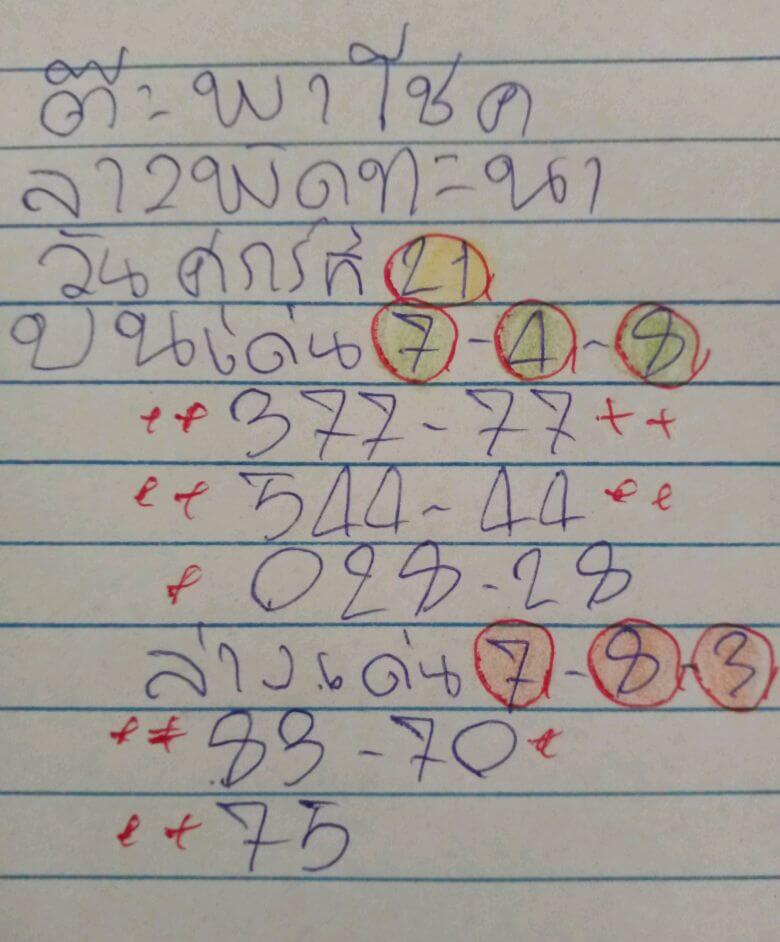 ต๊ะพาโชค
ลาวพัดทะนา
วันศุกร์ที่ 21
บนเด่น 7-4-8
++ 377-77 ++
++ 544-44 ++
+ 028-28
ล่างเด่น 7-8-3
++ 83-70 +
++ 75